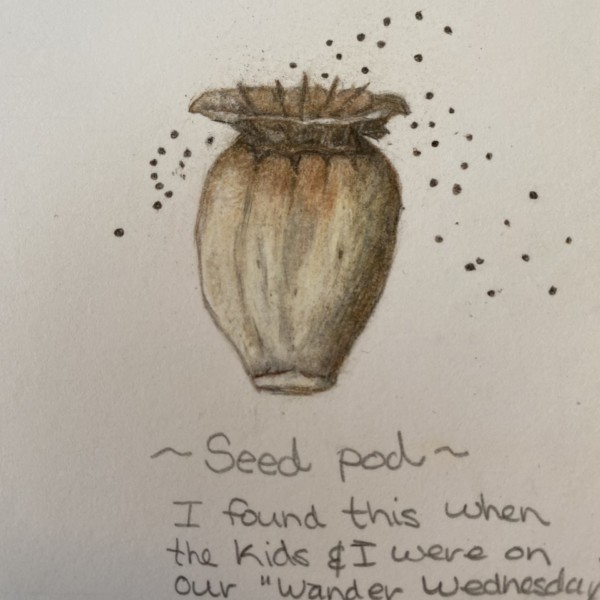 ~Seed pod~
I found this when
the kids & I were on
our "Wander Wednesday